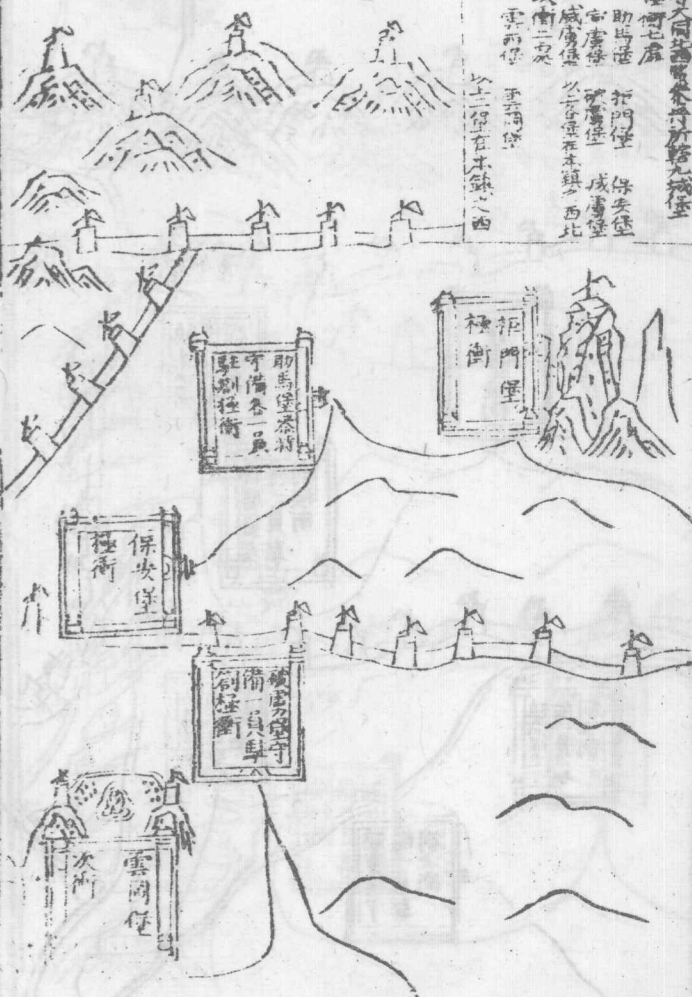 守大同北西路參將所轄九城堡
極衝七處
助馬堡 拒門堡 保安堡
虜堡 破虜堡 滅虜堡
威虜堡 以上七堡在本鎮之西北
次衝二處
雲西堡 雲岡堡
以上二堡在本鎮之西
拒門堡
極衝
助馬堡參將
守備各一員
駐劄極衝
保安堡
極衝
破虜堡守
備一員駐
劄極衝
雲岡堡
次衝